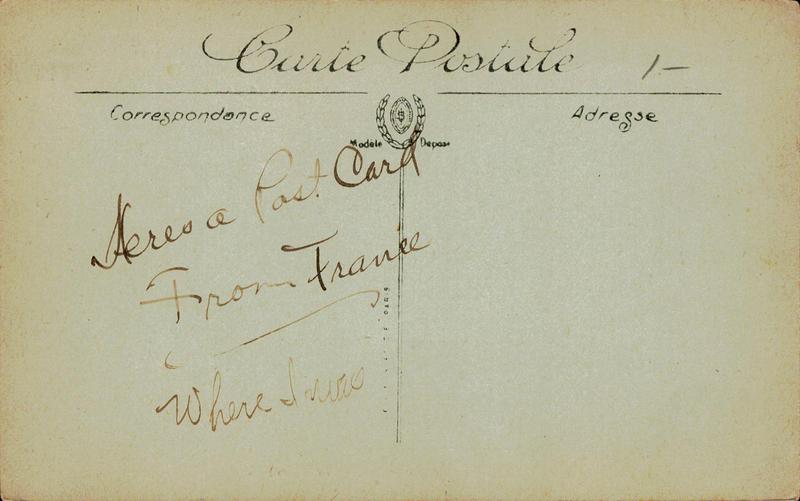 Carte Postale
1-
Correspondance
Adresse
Modele Depose
Heres a Post Card
From France
Where I was
PARIS